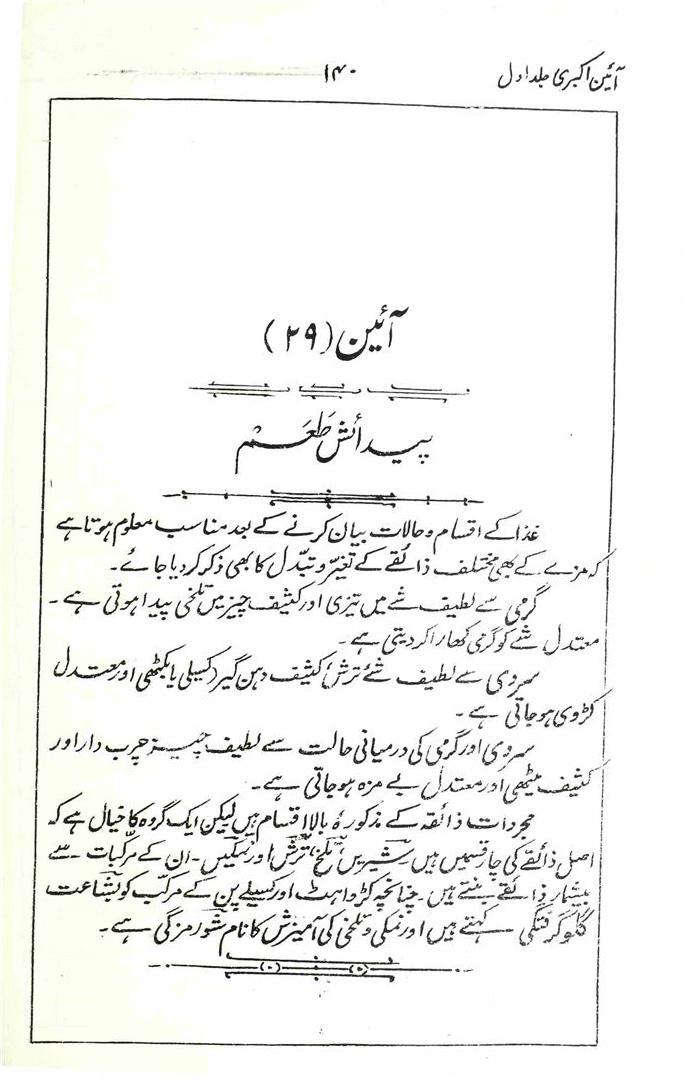 آئین اکبری جلد اول
۱۴۰
آئین (۲۹)
پیدائش طعم
غذا کے اقسام و حالات بیان کرنے کے بعد مناسب معلوم ہوتا ہے
کہ مزے کے بھی مختلف ذائقے کے تغیّر و تبدّل کا بھی ذکر کر دیا جائے۔
گرمی سے لطیف شے میں تیزی اور کثیف چیز میں تلخی پیدا ہوتی ہے۔
معتدل شے کو گرمی کھارا کر دیتی ہے۔
سردی سے لطیف شئے ترش، کثیف دہن گیر (کسیلی یا بکٹھی اور معتدل
کڑوی ہو جاتی ہے۔
سردی اور گرمی کی درمیانی حالت سے لطیف چیز چرب دار اور
کثیف میٹھی اور معتدل بے مزہ ہو جاتی ہے۔
مجردات ذائقہ کے مذکورۂ بالا اقسام ہیں لیکن ایک گروہ کا خیال ہے کہ
اصل ذائقے کی چار قسمیں ہیں شیریں، تلخ، ترش اور نمکین۔ ان کے مرکّبات سے
بیشمار ذائقے بنتے ہیں۔ چنانچہ کڑواہٹ اور کسیلے پن کے مرکّب کو بشاعت
گلوگرفتگی کہتے ہیں اور نمکی و تلخی کی آمیزش کا نام شور مزگی ہے۔